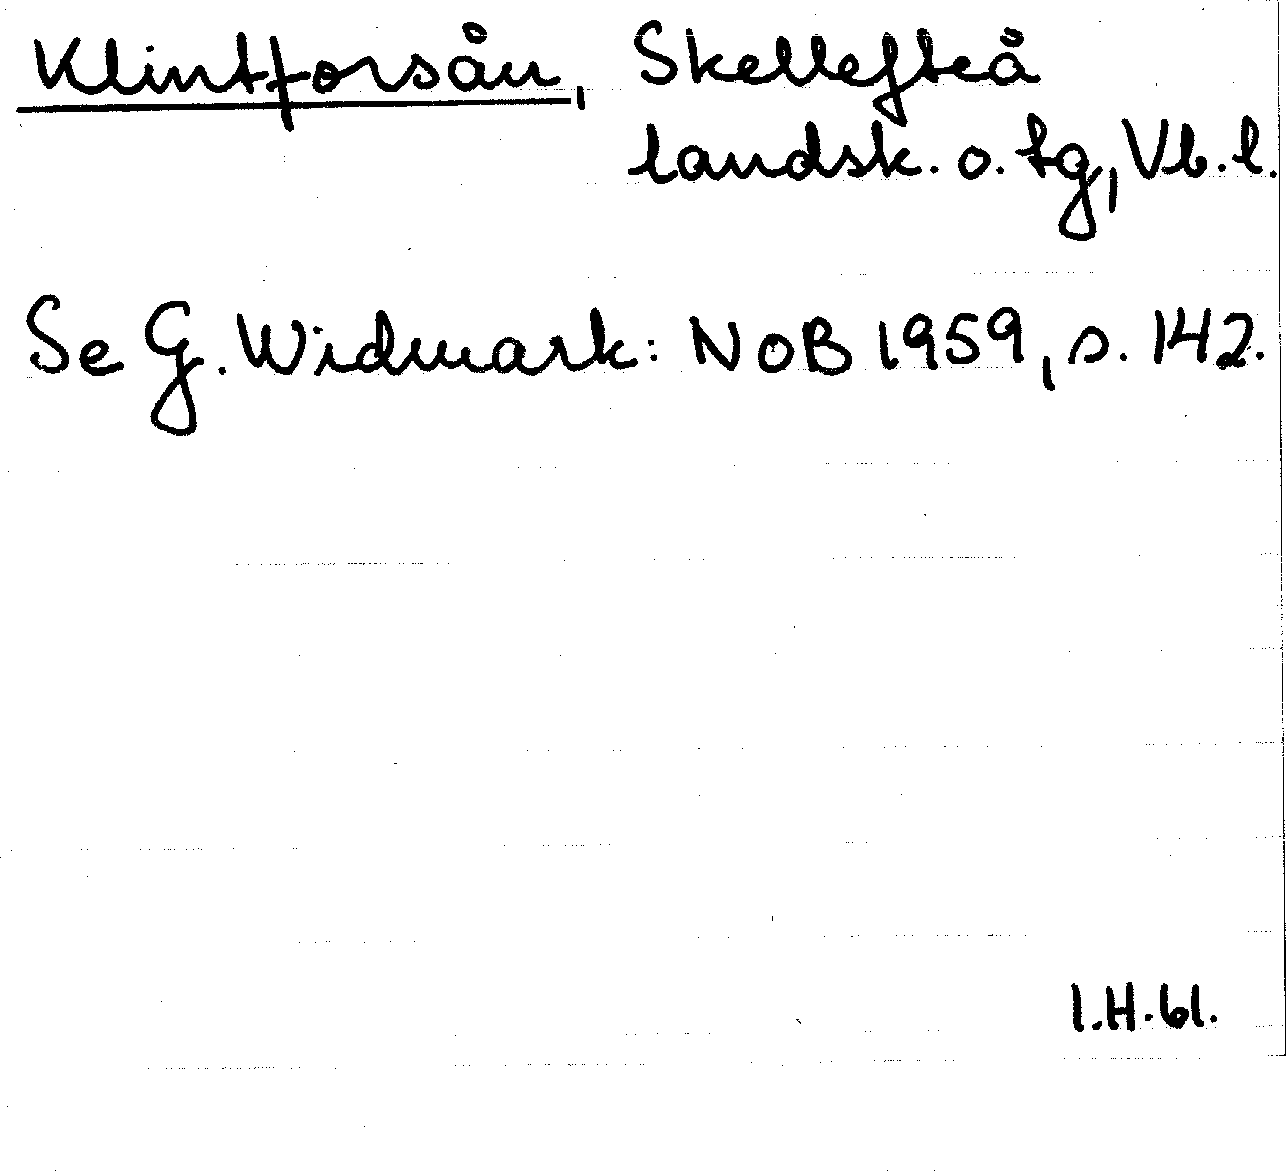 Klintforsån, Skellefteå
landsk. o. tg, Vb. l.
Se G. Widmark: NoB 1959, s. 142.
I.H. 61.